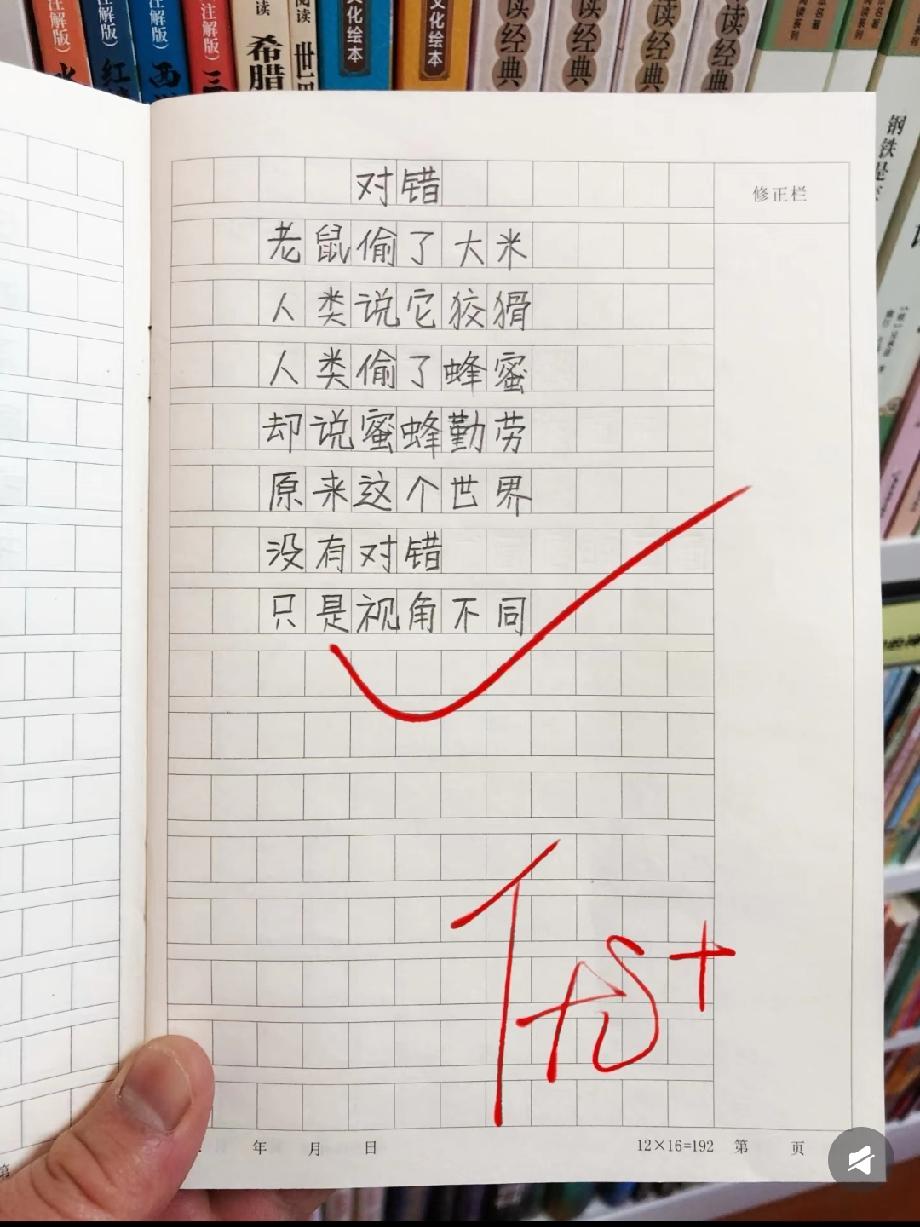 注解版)
注解版)
注解版)
注解版)
读
阅读
文化绘本
文化绘本
读经典
读经典
读经典
读经典
红
西
三
希腊
钢铁是
对错
修正栏
老鼠偷了大米
人类说它狡猾
人类偷了蜂蜜
却说蜜蜂勤劳
原来这个世界
没有对错
只是视角不同
优+
年 月 日
12×16=192 第 页
第